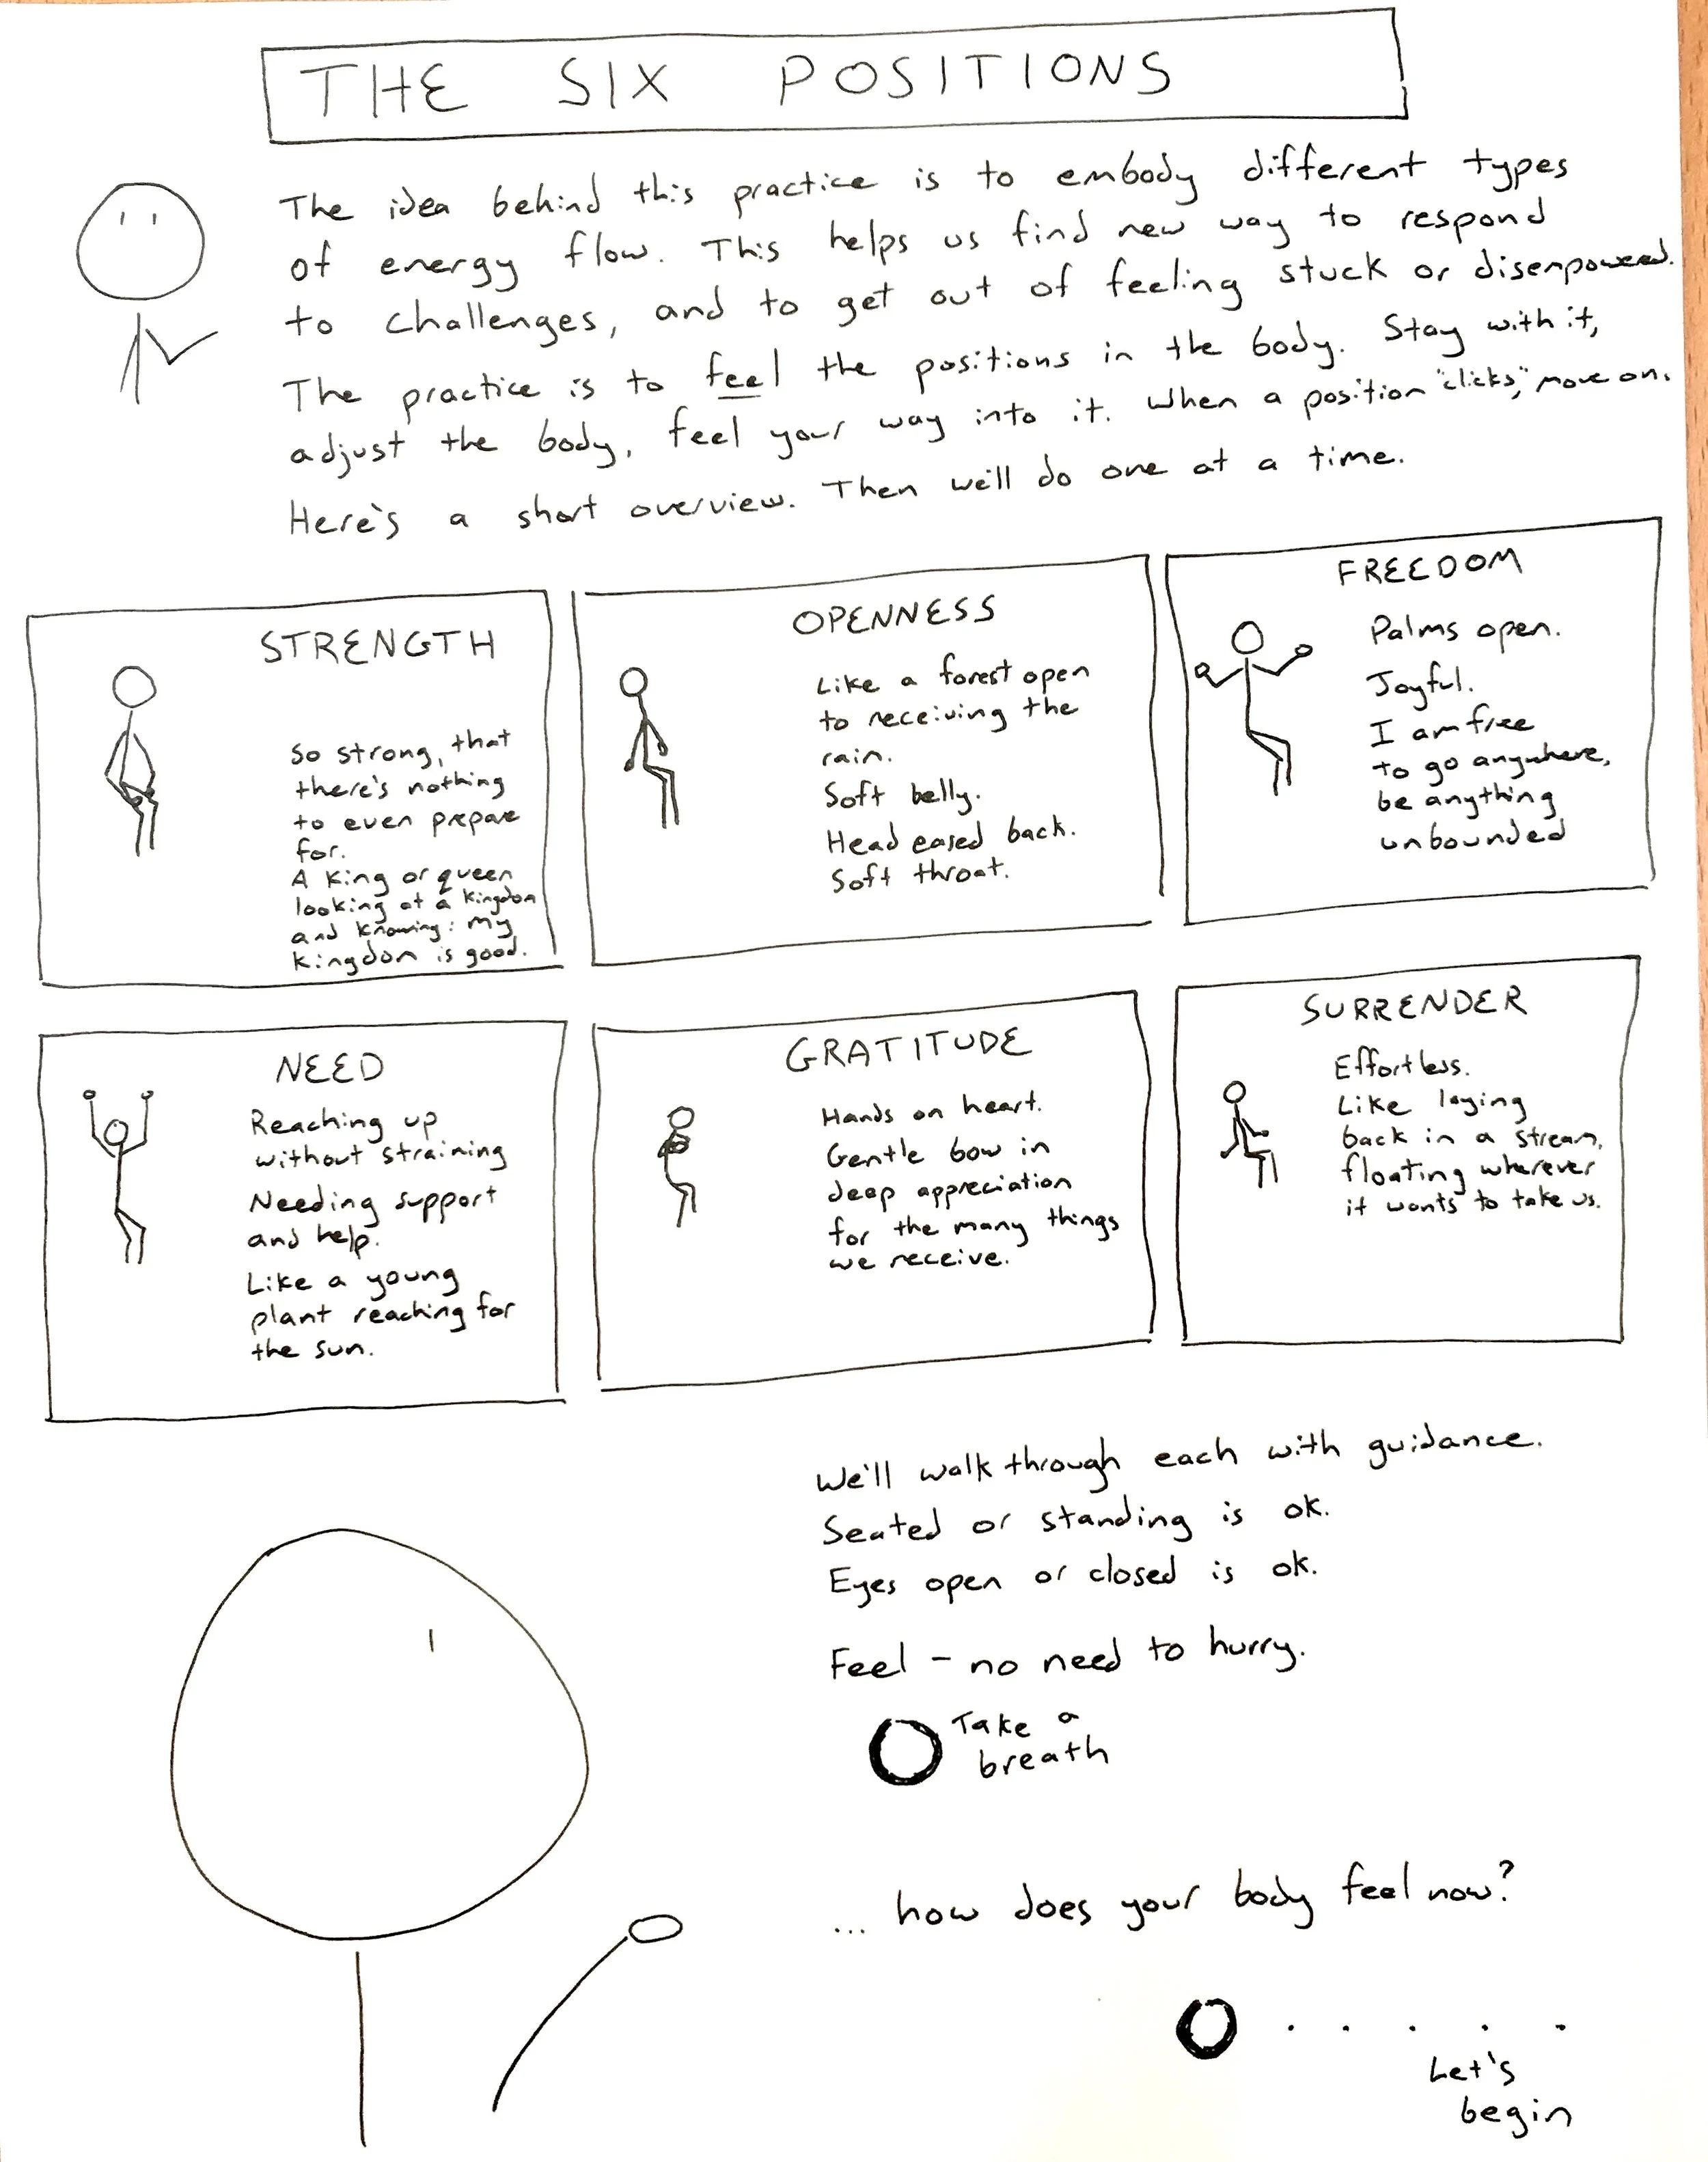 THE SIX POSITIONS
The idea behind this practice is to embody different types
of energy flow. This helps us find new way to respond
to challenges, and to get out of feeling stuck or disempowered.
The practice is to feel the positions in the body. Stay with it,
adjust the body, feel your way into it. When a position "clicks," move on.
Here's a short overview. Then we'll do one at a time.
STRENGTH
So strong, that
there's nothing
to even prepare
for.
A king or queen
looking at a kingdom
and knowing: my
kingdom is good.
OPENNESS
Like a forest open
to receiving the
rain.
Soft belly.
Head eased back.
Soft throat.
FREEDOM
Palms open.
Joyful.
I am free
to go anywhere,
be anything
unbounded
NEED
Reaching up
without straining
Needing support
and help.
Like a young
plant reaching for
the sun.
GRATITUDE
Hands on heart.
Gentle bow in
deep appreciation
for the many things
we receive.
SURRENDER
Effortless.
Like laying
back in a stream,
floating wherever
it wants to take us.
We'll walk through each with guidance.
Seated or standing is ok.
Eyes open or closed is ok.
Feel - no need to hurry.
Take a
breath
... how does your body feel now?
Let's
begin